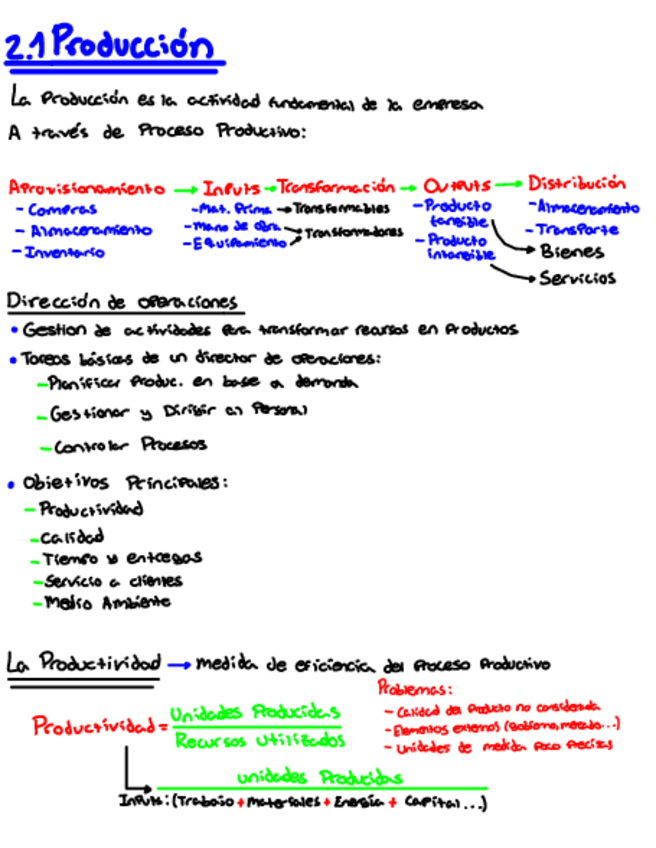 2.1 Producción
La Producción es la actividad fundamental de la empresa
A través de Proceso Productivo:
Aprovisionamiento → Inputs → Transformación → Outputs → Distribución
- Compras
- Almacenamiento
- Inventario
- Mat. Prima → Transformables
- Mano de obra → Transformadores
- Equipamiento
- Producto tangible
- Producto intangible
- Almacenamiento
- Transporte
→ Bienes
→ Servicios
Dirección de operaciones
• Gestion de actividades para transformar recursos en Productos
• Tareas básicas de un director de operaciones:
- Planificar Produc. en base a demanda
- Gestionar y Dirigir al Personal
- Controlar Procesos
• Objetivos Principales:
- Productividad
- Calidad
- Tiempo y entregas
- Servicio a clientes
- Medio Ambiente
La Productividad → medida de eficiencia del Proceso Productivo
Problemas:
- Calidad del Producto no considerada
- Elementos externos (Gobierno, mercado...)
- Unidades de medida Poco Precisas
Productividad = Unidades Producidas
Recursos Utilizados
unidades Producidas
Inputs: (Trabajo + Materiales + Energía + Capital...)